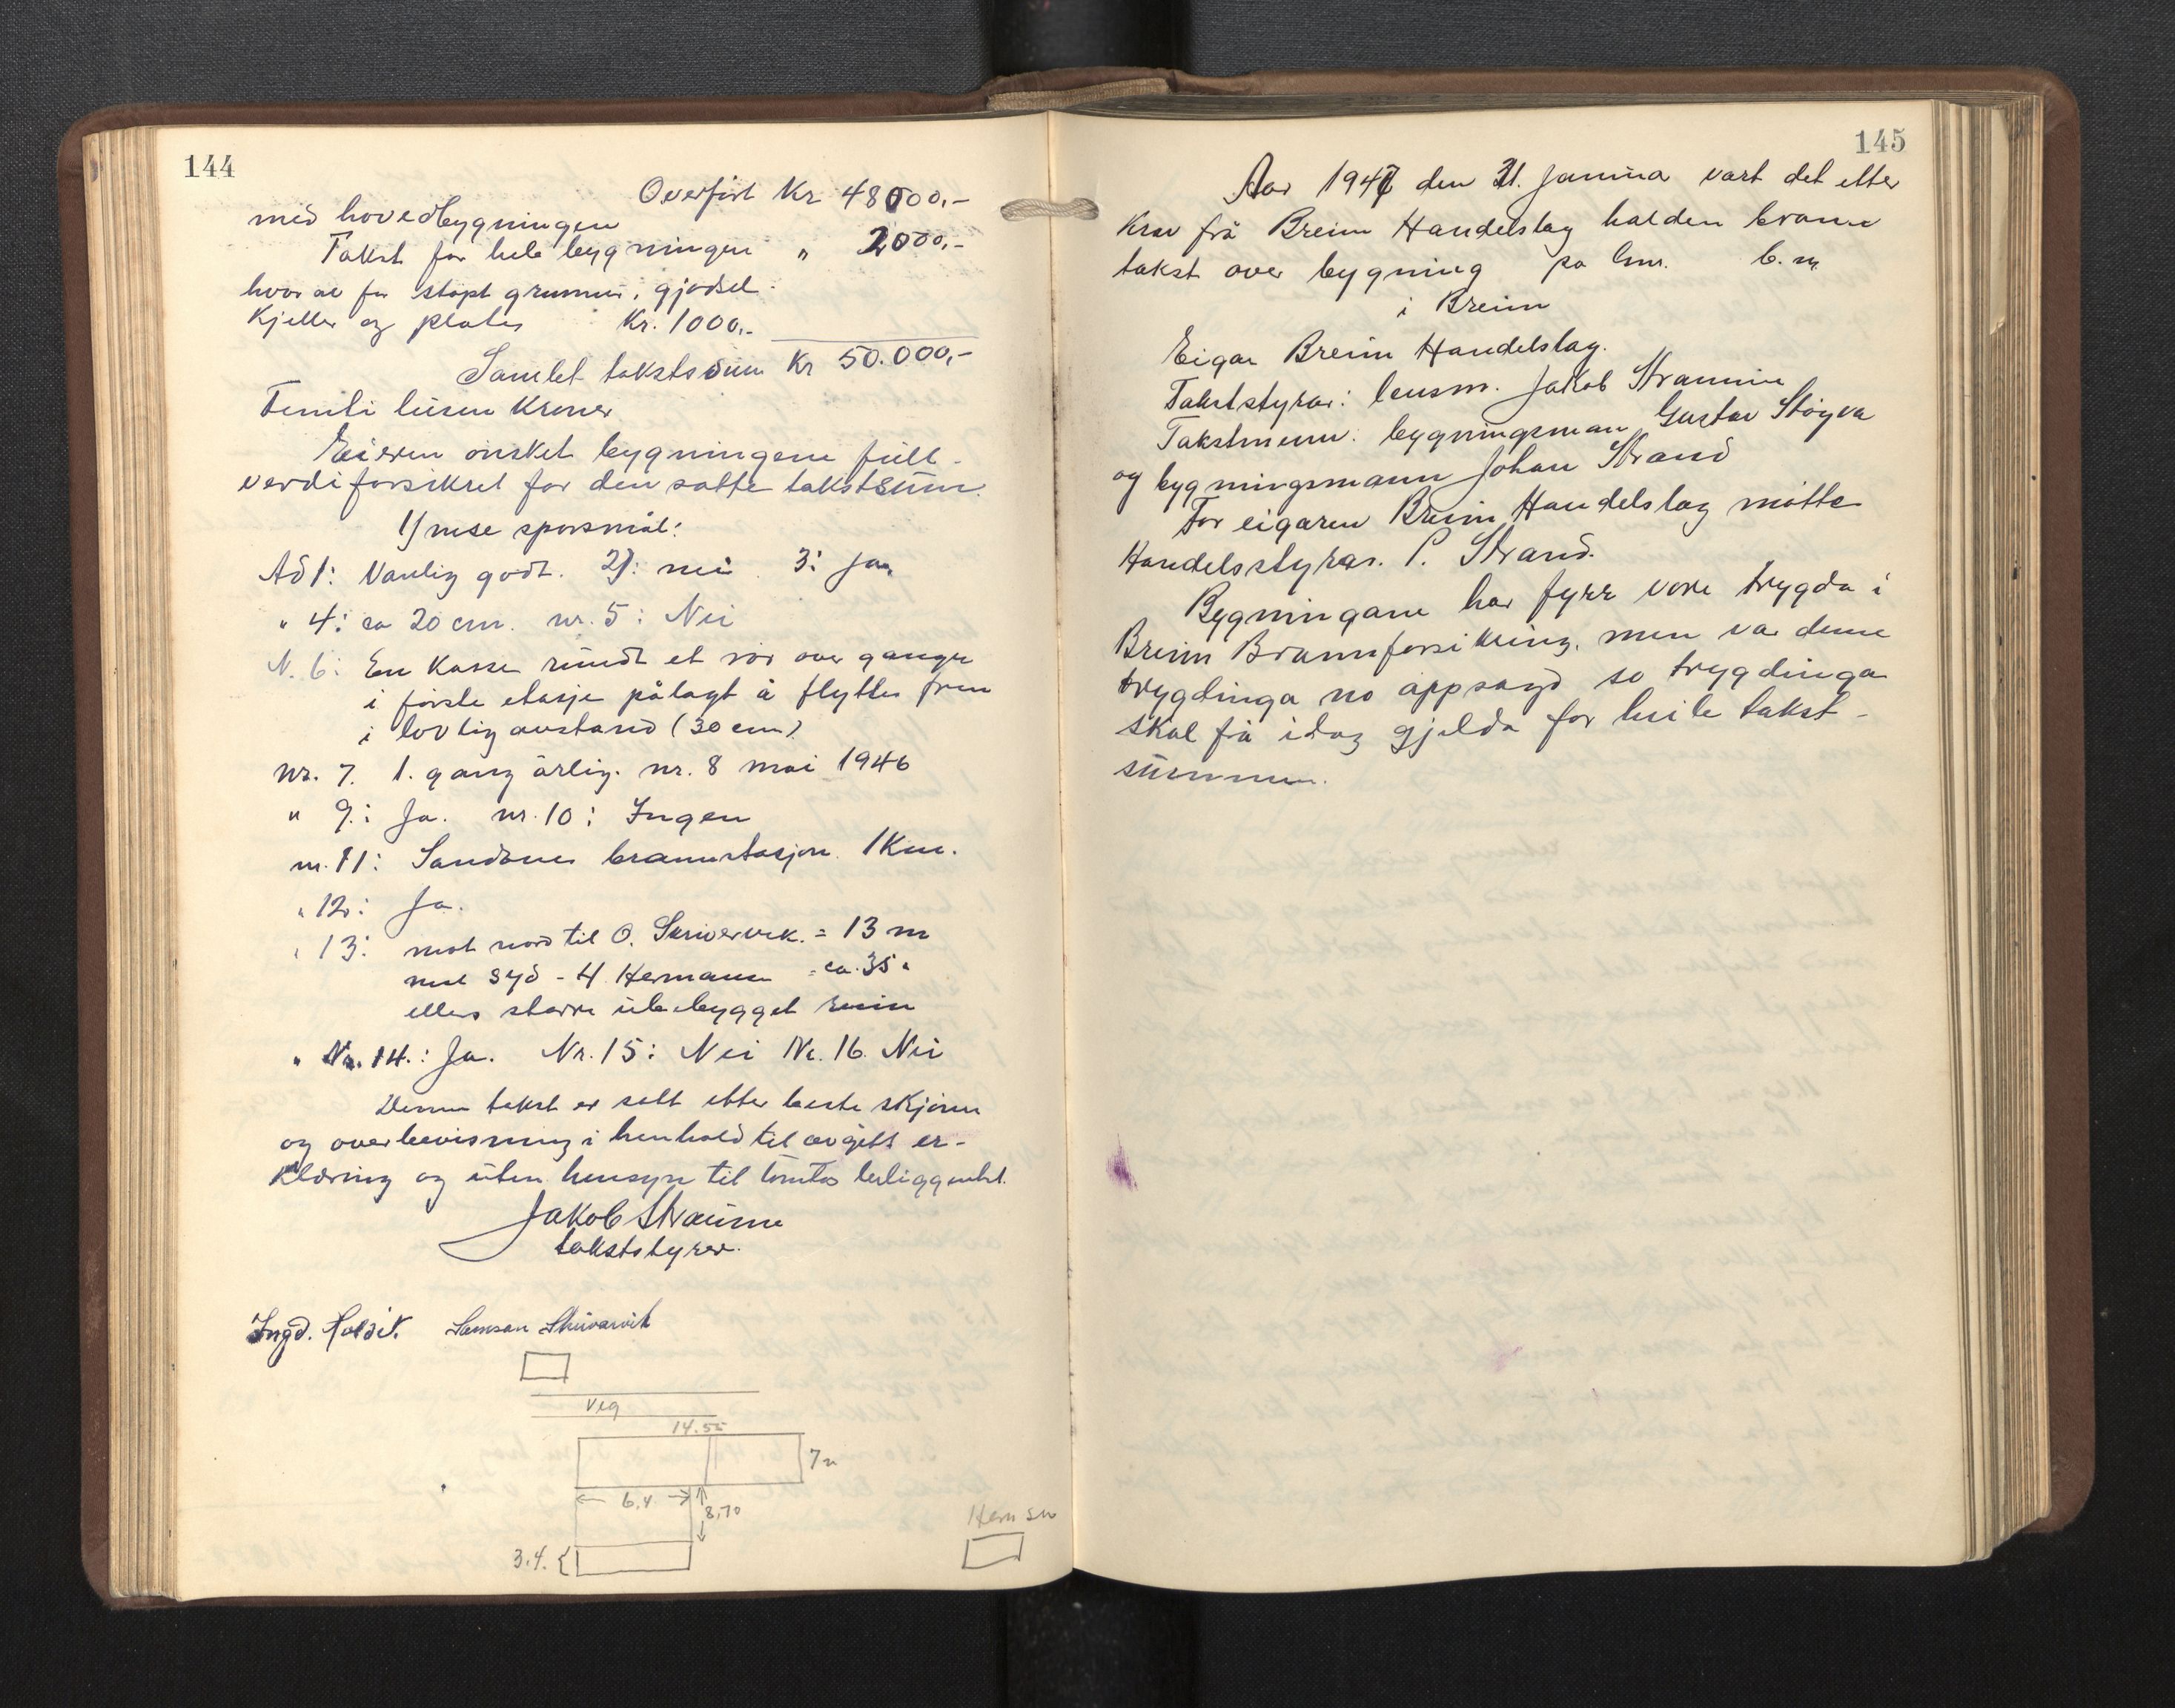 144
Overført Kr 48000,-
med hovedbygningen
Takst for hele bygningen " 2000,-
hvor av for støpt grunnmur, gjødsel
kjeller og plater Kr. 1000,-
Samlet takstsum Kr 50.000,-
Femti tusen kroner
Eieren ønsket bygningene full-
verdiforsikret for den satte takstsum.
Ad 1: Vanlig godt. 2): nei 3: Ja.
" 4: ca 20 cm. nr. 5: Nei
N. 6: En kasse rundt et rør over gangen
i første etasje pålagt å flyttes frem
i lovlig avstand (30 cm)
Nr. 7. 1. gang årlig. nr. 8 mai 1946
" 9.: Ja. nr. 10: Ingen
nr. 11: Sandane brannstasjon 1 Km.
" 12: Ja.
" 13: mot nord til O. Skrivervik. = 13 m
mot syd - H Hermann = ca. 35 "
ellers større ubebygget
" Nr. 14.: Ja. Nr. 15: Nei Nr. 16. Nei
Denne takst er satt etter beste skjønn
og overbevisning i henhold til avgitt er-
klæring og uten hensyn til tomtas beliggenhet.
Jakob Straume
takststyrer.
Ingd. Samson Skrivarvik
Veg
14.55
7 m
6.4
8,70
3.4.
145
Aar 1947 den 31. Januar vart det etter
krav frå Breim Handelslag halden brann
takst over bygning på gnr. b. nr.
i Breim
Eigar Breim Handelslag.
Takststyrar: lensm. Jakob Straume
Takstmenn: bygningsman Gustav Støyva
og bygningsmann Johan Strand
For eigaren Breim Handelslag møtte
Handelsstyrar. P. Strand.
Bygningane har fyrr vore trygda i
Breim Brannforsikring, men var denne
trygdinga no oppsagd so trygdinga
skal frå idag gjelda for heile takst-
summen.